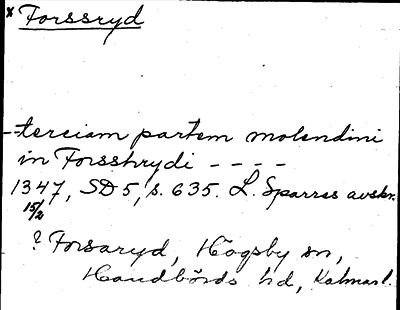 x Forssryd
--terciam partem molendini
in Forsshrydi - - - -
1347, SD 5, s. 635. L. Sparres avskr.
15/2
? Forsaryd, Högsby sn,
Handbörds hd, Kalmar l.